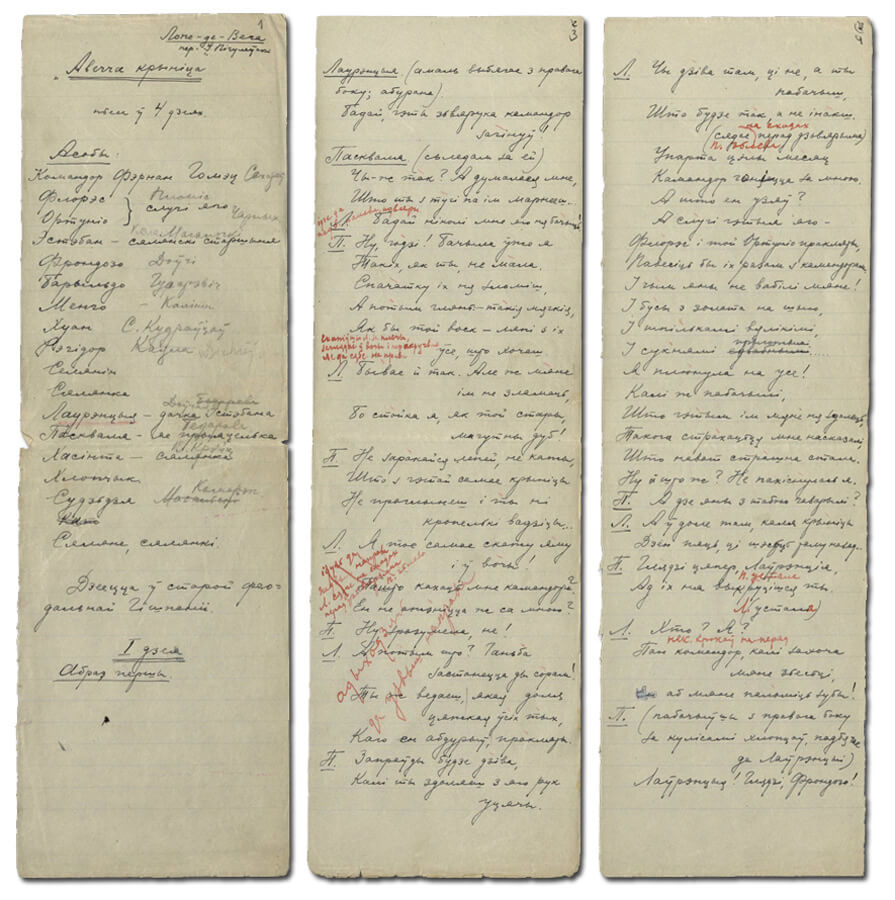 1
Лопе-де-Вега
пер. Ў Пічулёўскі
"Авечча крыніца
п'еса ў 4 дзеях.
Асобы:
Командор Фэрнан Гомэц
Флорэс
Ортуніо } слугі яго
Эстэбан - сялянскі старшыня
Фрондозо Доўгі
Барыльдо
Менго - Калінін
Хуан С. Кудраўцаў
Рэгідор
Селянін
Сялянка
Лаўрэнцыя - дачка Эстэбана
Паскваля - яе прыяцелька
Хасінта - сялянка
Хлопчык
Судзьдзя
Сяляне, сялянкі.
Дзеецца ў старой фео-
дальнай Гішпаніі.
I дзея
Абраз першы.
3
Лаўрэнцыя. (амаль выбягае з правага
боку; абурана).
Бадай, гэты зьвярука командор
загінуў!
Паскваля (сьледам за ёй)
Чы-ж так? А думалася мне,
Што ты з тугі па ім марнееш.
Л. Бадай ніколі мне яго ня бачыць!
П. Ну, годзі! Бачыла ўжо я
Такіх, як ты, не мала.
Спачатку іх ня зломіш,
А потым глянь - такія мяккія,
Як бы той воск - ляпі з іх
усе, що хочаш
Л. Бывае й так. Але ж мяне
ім не зламаць,
Бо стойка я, як той стары,
магутны дуб!
П. Не заракайся лепей, не кажы,
Што з гэтай самае крыніцы
Не праглынеш і ты ні
кропелькі вадзіцы...
Л. Я тое самае скажу яму
і ў вочы!
Нашто кахаць мне командора?
Ён не ажэніцца ж са мною?
П. Ну, зразумела, не!
Л. А потым що? Ганьба
застанецца ды сорам!
Ты ж ведаеш, якая доля
цяпская ўсіх тых,
Каго ён абдурыў, пракляты.
П. Запраўды будзе дзіва,
Калі ты здолееш з яго рук
уцячы.
4
Л. Чы дзіва там, ці не, а ты
пабачыш,
Што будзе так, а не інакш.
(сядае перад дзьвярыма)
на сходах
Упарта цэлы месяц
Камандор гоніцца за мною.
А што ён узяў?
А слугі гэтыя яго -
Флёрэс і той Ортуніо пракляты,
Павесіць бы іх разам з камендорам,
І чым яны не вабілі мяне!
І бусы з золата на шыю,
І шпількамі вялікімі,
І сукнямі
Я плюнула на ўсе!
Калі ж пабачылі,
Што гэтым ім мяне ня здолець,
Такога страхацця мне насказалі,
Што нават страшна стала.
Ну й що ж? Не пахіснулася я.
П. А дзе яны з табою гаварылі?
Л. А ў доле там, каля крыніцы
Дзён пяць, ці шэсць таму назад...
П. Глядзі цяпер, Лаўрэнція,
Ад іх ня выкруцішся ты.
Л. устала)
Л. Хто? Я?
нек. крокаў на перад
Пан командор, калі захоча
мяне звесьці,
аб мяне паломіць зубы!
П. (пабачыўшы з правага боку
за кулісамі хлопцаў, падбяж.
да Лаўрэнцыі)
Лаўрэнцыя! Глядзі, Фрондозо!